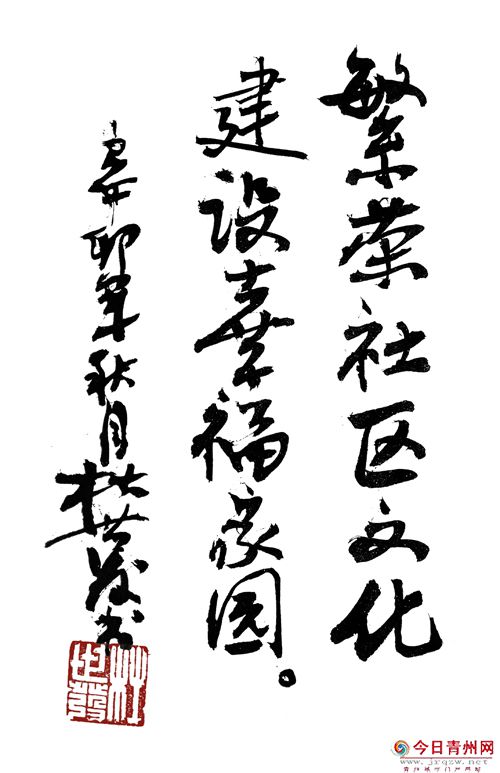 繁荣社区文化
建设幸福家园。
辛卯年秋月杜世发书
杜世發
今日青州网
www.jrqzw.net